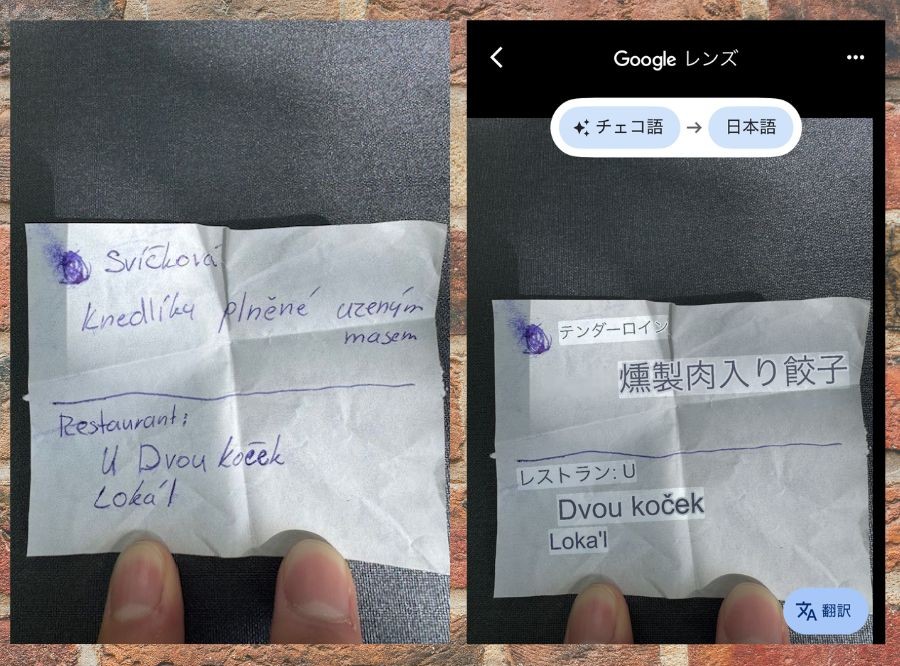 Svíčková
Knedlíky plněné uzeným
masem
Restaurant:
U Dvou koček
Loká'l
Google レンズ
チェコ語 → 日本語
テンダーロイン
燻製肉入り餃子
レストラン: U
Dvou koček
Loka'l
翻訳